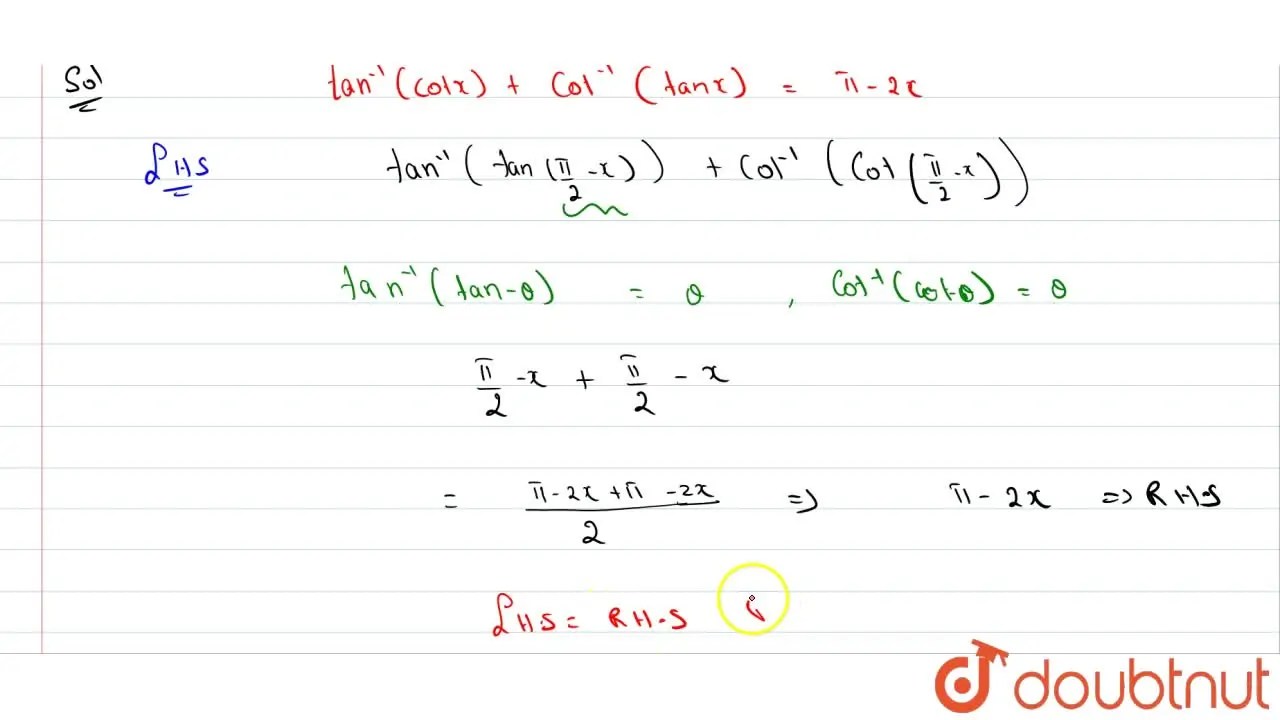 Sol
tan⁻¹(cotx) + cot⁻¹(tanx) = π - 2x
LHS tan⁻¹(tan(π/2 -x)) + cot⁻¹(cot(π/2 -x))
tan⁻¹(tan-θ) = θ , cot⁻¹(cot-θ) = θ
π/2 -x + π/2 - x
= (π-2x+π -2x)/2 => π- 2x => RH.S
LH.S = RH.S
doubtnut